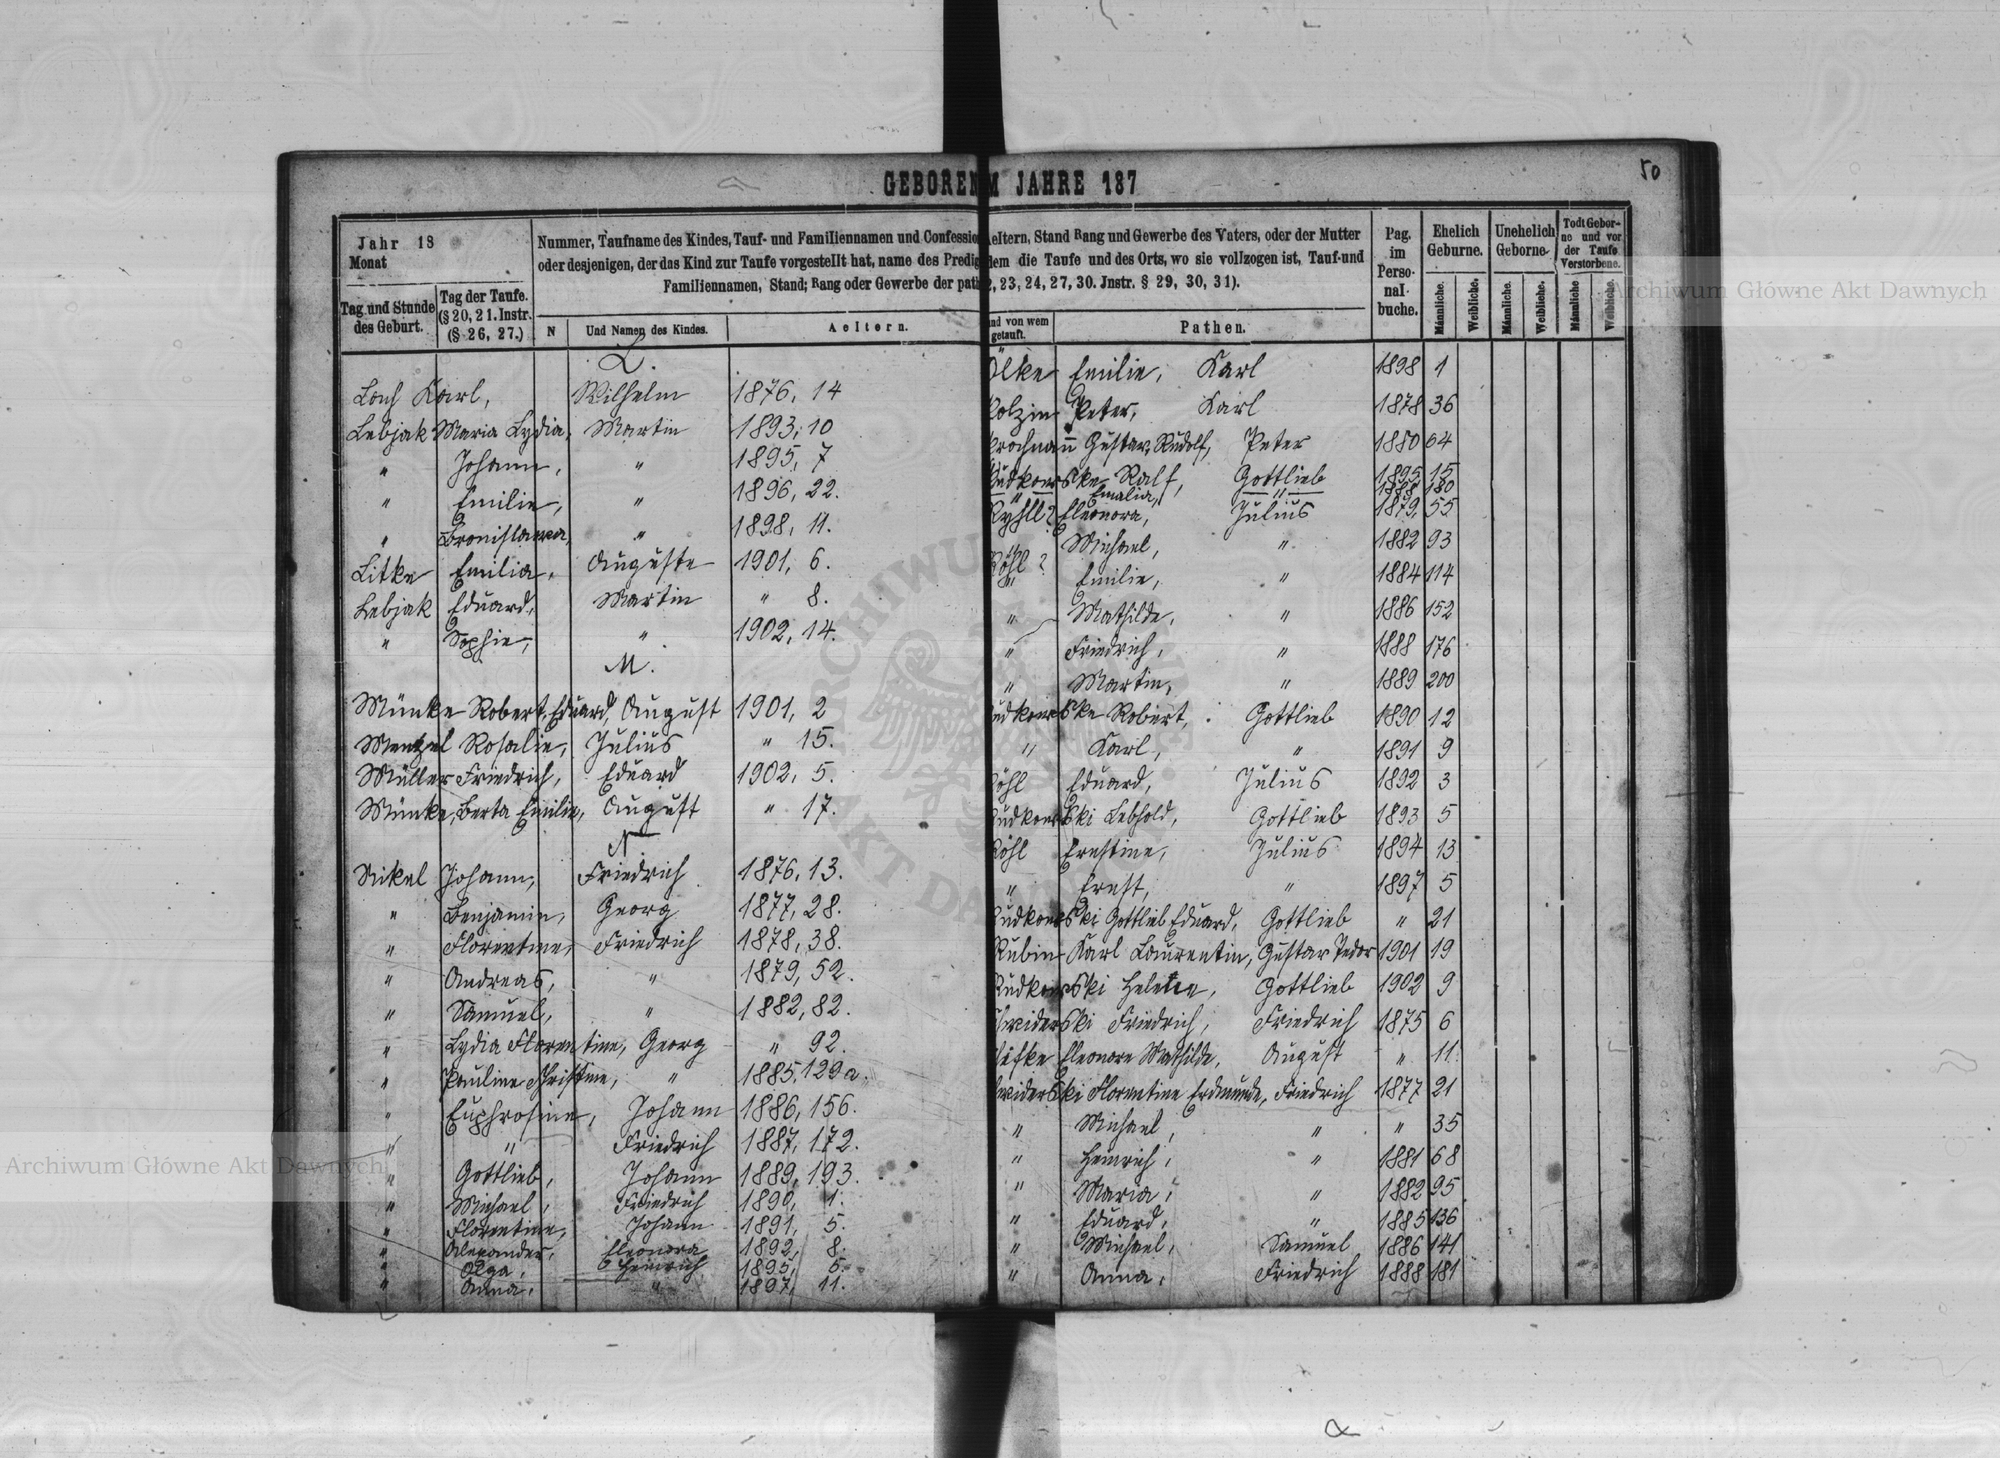 50
GEBOREN M JAHRE 187
Jahr 18
Monat
Tag und Stunde des Geburt.
Tag der Taufe. (§ 20, 21. Instr. (§ 26, 27.)
Nummer, Taufname des Kindes, Tauf- und Familiennamen und Confession
oder desjenigen, der das Kind zur Taufe vorgestellt hat, name des Predig
Familiennamen, Stand; Rang oder Gewerbe der path
N
Und Namen des Kindes.
Aeltern.
L.
Lach Karl, Wilhelm 1876, 14
Lebjak Maria Lydia, Martin 1893, 10
" Johann, " 1895, 7
" Emilie, " 1896, 22.
" Bronislawa, " 1898, 11.
Litke Emilia, Auguste 1901, 6.
Lebjak Eduard, Martin " 8.
" Sophie, " 1902, 14.
M.
Münke Robert Eduard, August 1901, 2
Menzel Rosalie, Julius " 15.
Müller Friedrich, Eduard 1902, 5.
Münke, Berta Emilie, August " 17.
N
Nikel Johann, Friedrich 1876, 13.
" Benjamin, Georg 1877, 28.
" Florentine, Friedrich 1878, 38.
" Andreas, " 1879, 52.
" Samuel, " 1882, 82.
" Lydia Florentine, Georg " 92.
" Pauline Christine, " 1885, 129a.
" Euphrosine, Johann 1886, 156.
" " Friedrich 1887, 172.
" Gottlieb, Johann 1889, 193.
" Michael, Friedrich 1890, 1.
" Florentine, Johann 1891, 5.
" Alexander, Eleonora 1892, 8.
" Olga, Heinrich 1895, 5.
" Anna, " 1897, 11.
Aeltern, Stand Rang und Gewerbe des Vaters, oder der Mutter
dem die Taufe und des Orts, wo sie vollzogen ist, Tauf-und
2, 23, 24, 27, 30. Jnstr. § 29, 30, 31).
nd von wem getauft.
Pathen.
Pag. im Perso- nal- buche.
Ehelich Geburne.
Unehelich Geborne.
Todt Gebor- ne und vor der Taufe Verstorbene.
Männliche.
Weibliche.
Männliche.
Weibliche.
Männliche
Weibliche.
ölke Emilie, Karl 1898 1
olzin Peter, Karl 1878 36
rochnau Gustav Rudolf, Peter 1880 64
Rudkowske Ralf, Gottlieb 1895 15
" Emalia, " 1888 180
Ryhll? Eleonora, Julius 1879, 55
Röhl? Michael, " 1882 93
" Emilie, " 1884 114
" Mathilde, " 1886 152
" Friedrich, " 1888 176
" Martin, " 1889 200
udkowske Robert, Gottlieb 1890 12
" Karl, " 1891 9
öhl Eduard, Julius 1892 3
udkowski Lebhold, Gottlieb 1893 5
öhl Ernestine, Julius 1894 13
" Ernst, " 1897 5
Rudkowski Gottlieb Eduard, Gottlieb " 21
Rubin Karl Laurentin, Gustav Teodor 1901 19
Rudkowski Helene, Gottlieb 1902 9
hwiderski Friedrich, Friedrich 1875 6
Eleonore Mathilde, August " 11.
widerski Florentine Erdmunde, Friedrich 1877 21
" Michael, " " 35
" Heinrich, " 1881 68
" Maria, " 1882 95
" Eduard, " 1885 136
" Michael, Samuel 1886 141
" Anna, Friedrich 1888 181
ARCHIWUM
AKT DAWNYCH
Archiwum Główne Akt Dawnych
Archiwum Główne Akt Dawnych